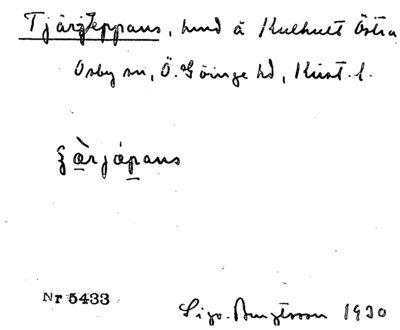 Tjärjeppans, hund å Kulhult Östra
Osby sn, Ö. Göinge hd, Krist. l.
ʂæ̀rjápans
Nr 5433
Sigv. Bengtsson 1930